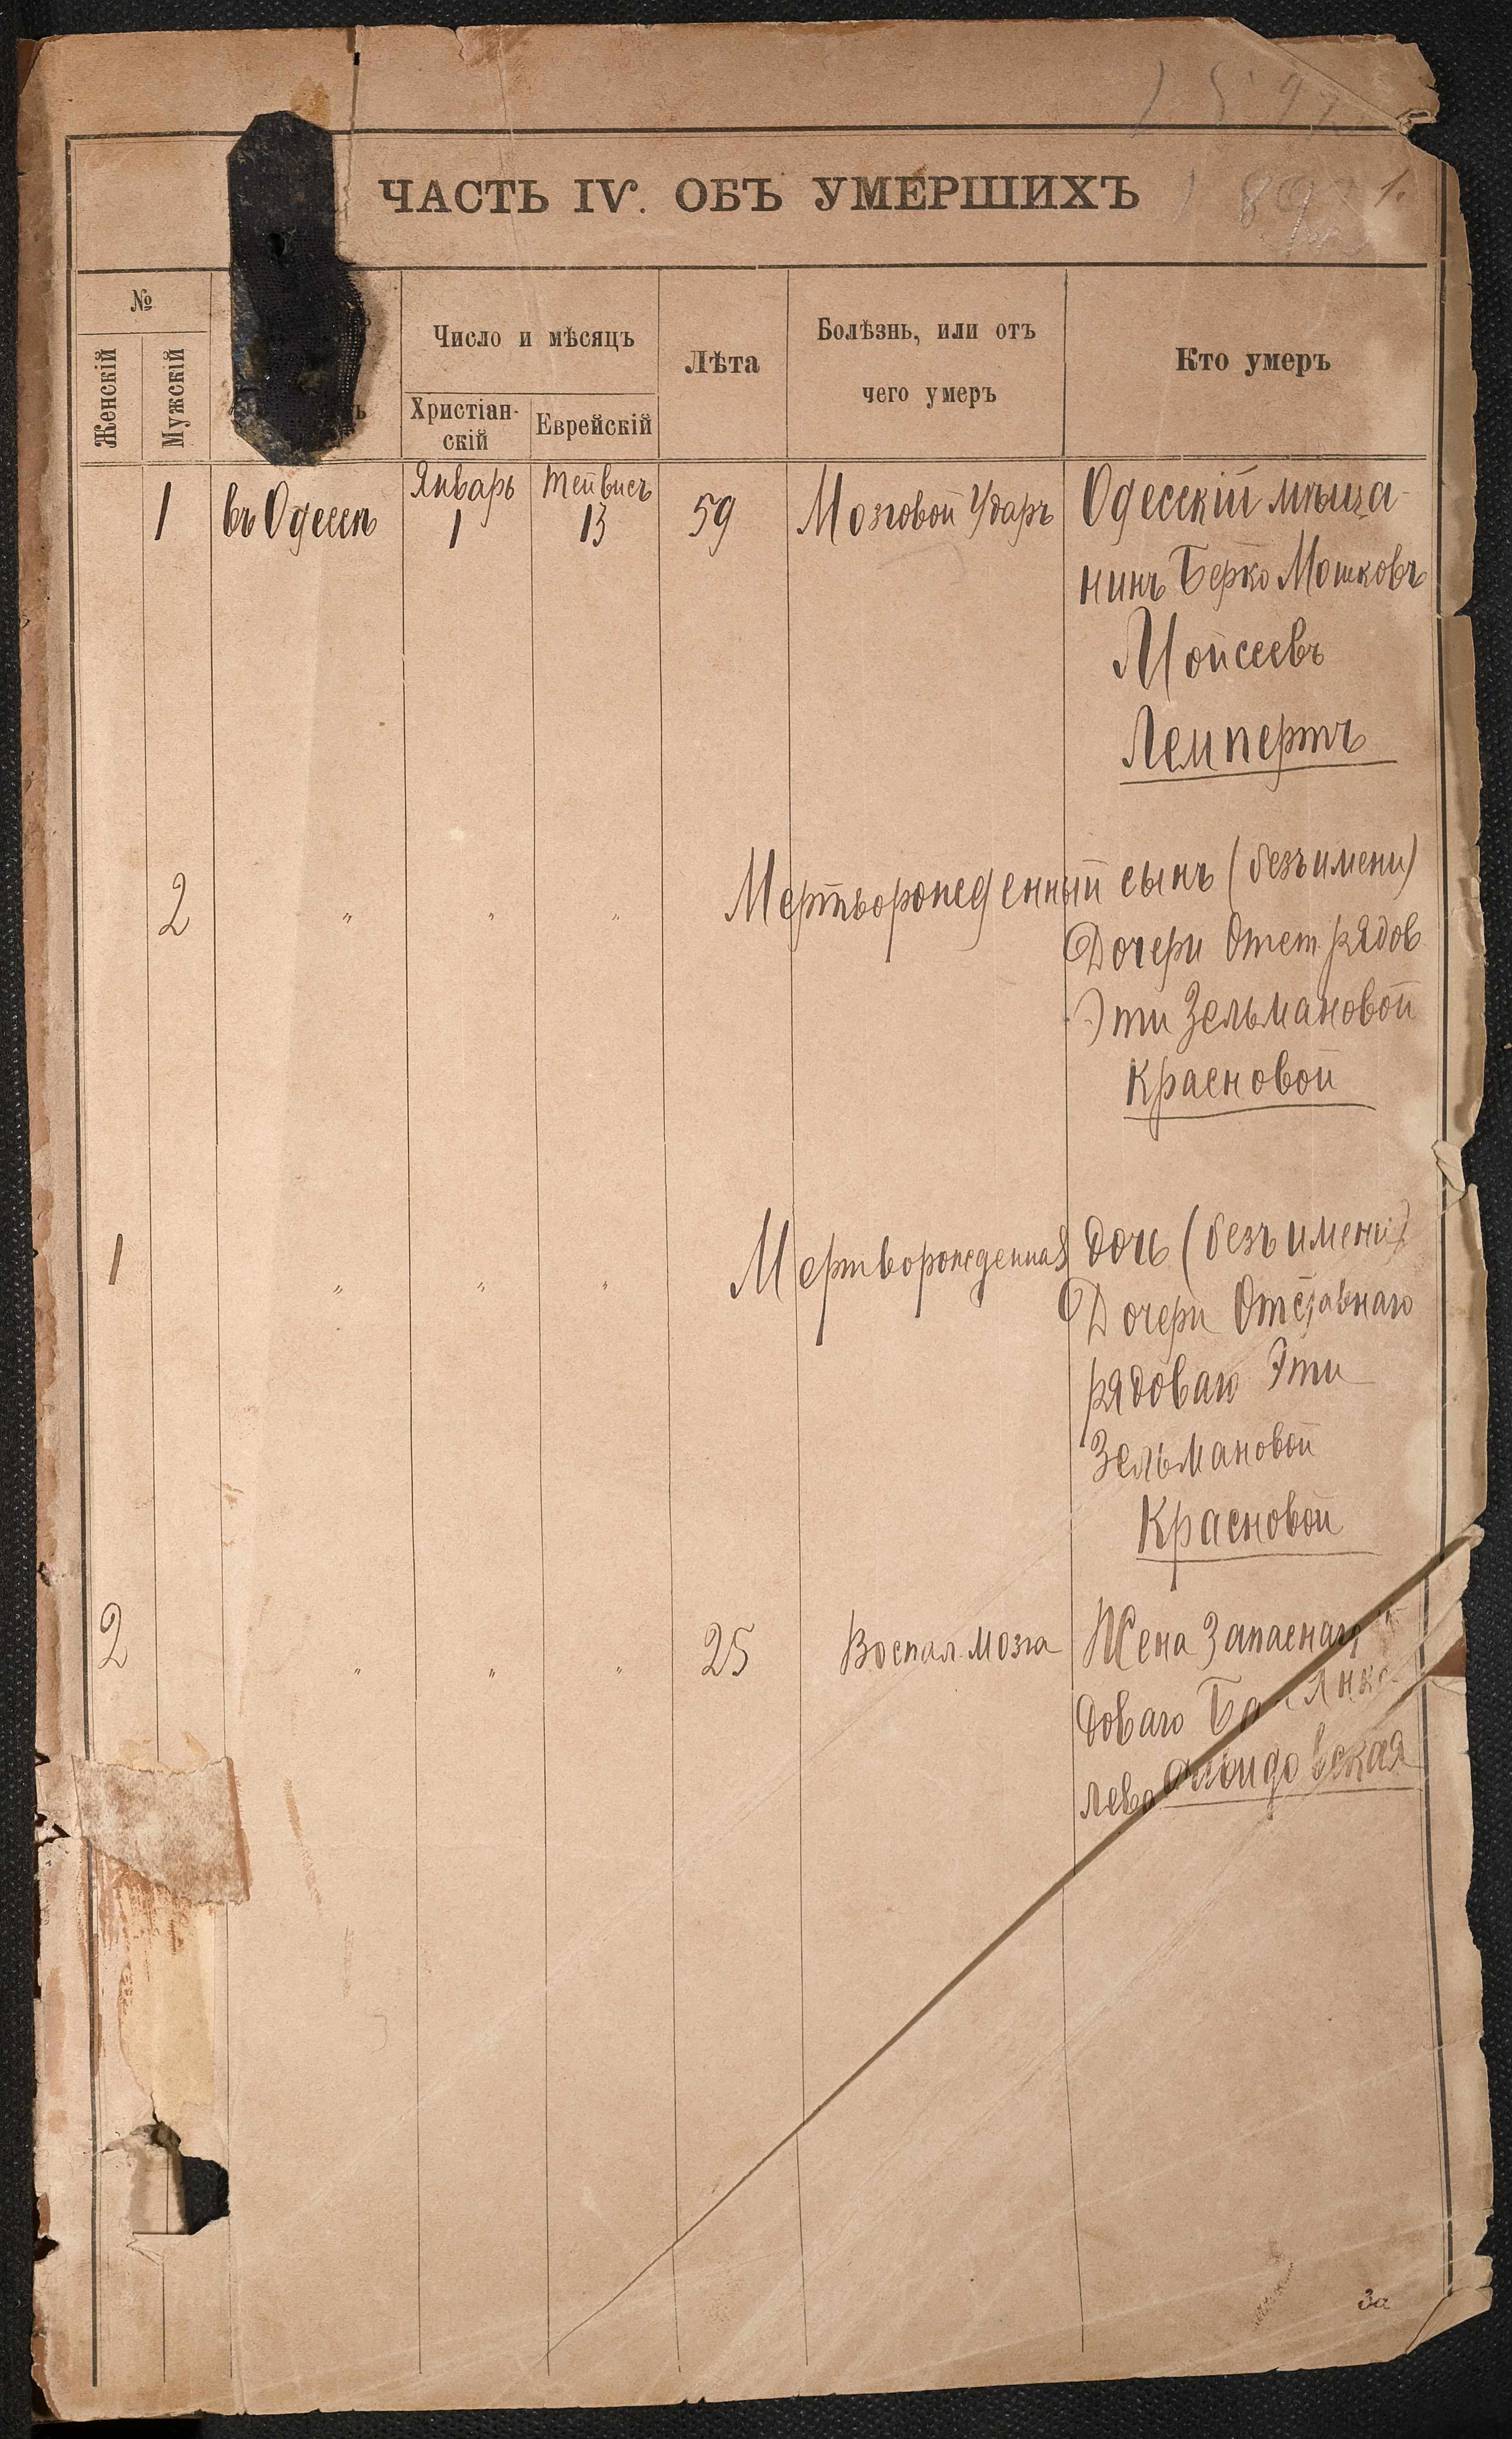 ЧАСТЬ IV. ОБЪ УМЕРШИХЪ
№
Женскій
Мужскій
Число и мѣсяцъ
Христіан-
скій
Еврейскій
Лѣта
Болѣзнь, или отъ
чего умеръ
Кто умеръ
1 въ Одессѣ Январь 1 Тейвисъ 13 59 Мозговой Ударъ Одесскій мѣща-
нинъ Берко Мошковъ
Мойсеевъ
Лемпертъ
2 " " " Мертворожденный сынъ (безъ имени)
Дочери Отст рядов
Эти Зельмановой
Красновой
1 " " " Мертворожденная дочь (безъ имени)
Дочери Отставнаго
рядоваго Эти
Зельмановой
Красновой
2 " " " 25 Воспал. мозга Жена Запаснаго
доваго
лева
За